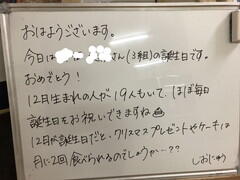 おはようございます。
今日は さん(3組)の誕生日です。
おめでとう！
12月生まれの人が19人もいて、ほぼ毎日
誕生日をお祝いできますね
12月が誕生日だと、クリスマスプレゼントやケーキは
月に2回食べられるのでしょうか…??
しおにゅう